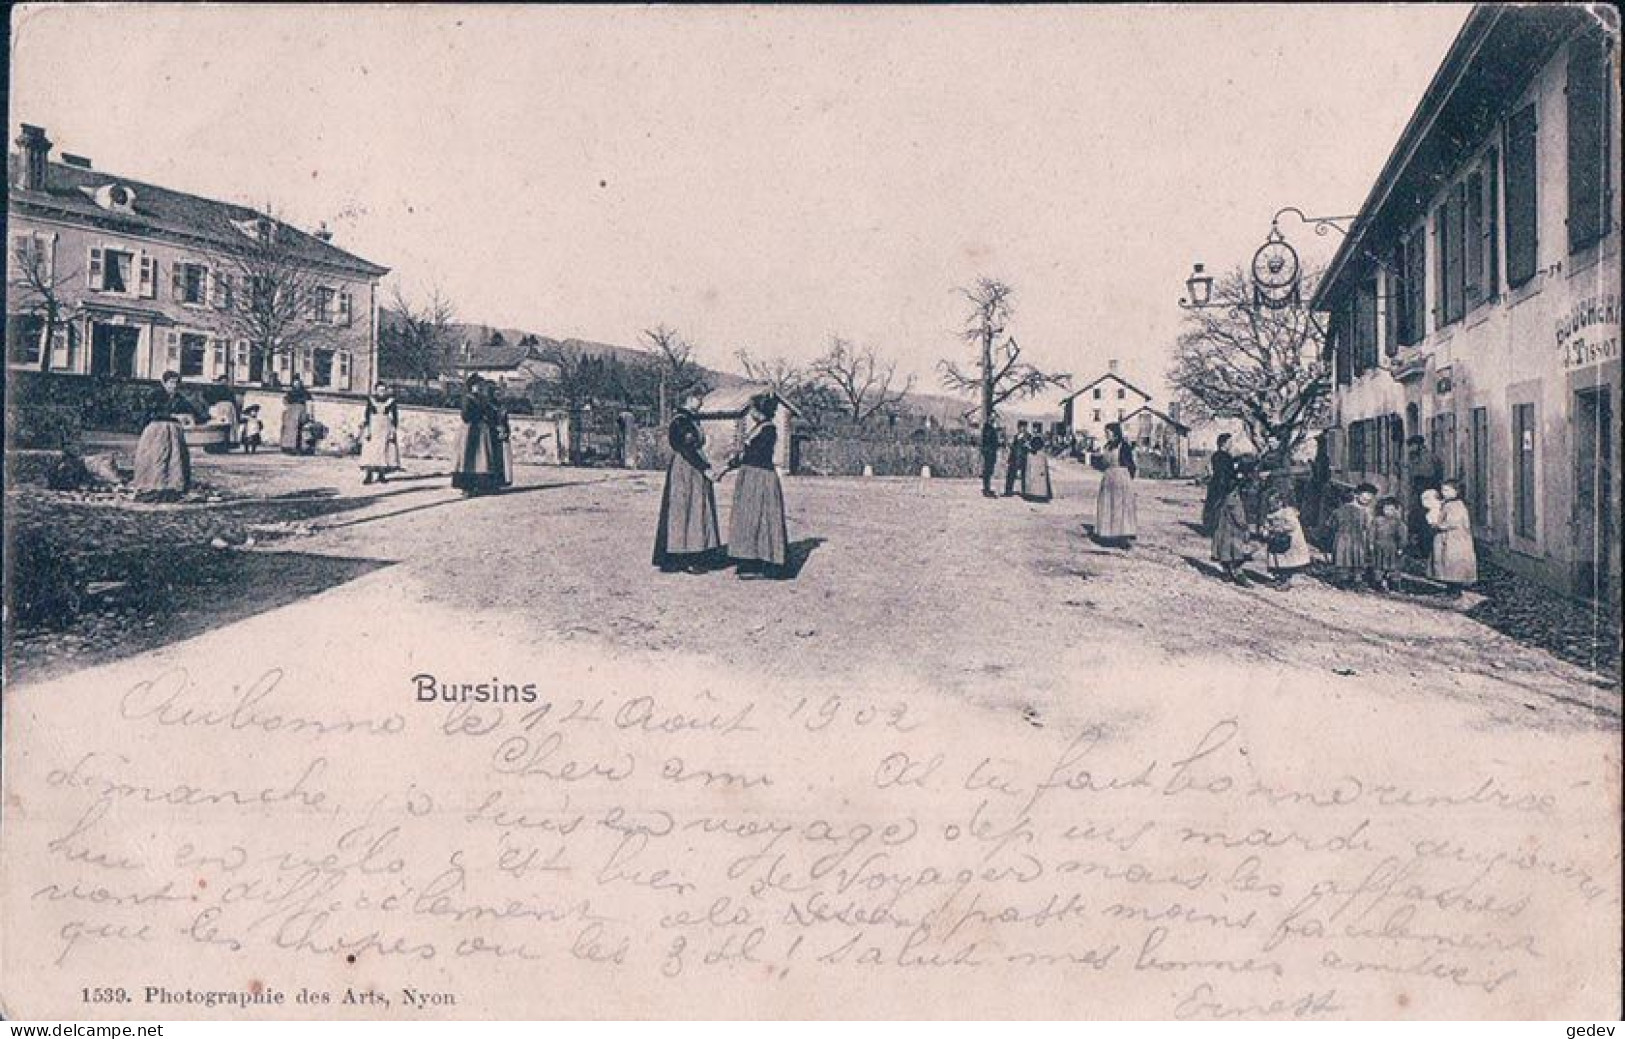 BOUCHER
J. TISSOT
Bursins
Aubonne le 14 Août 1902
Cher ami. As tu fait bonne rentrée
dimanche, je suis en voyage depuis mardi aujourd'
hui en vélo c'est bien de voyager mais les affaires
vont difficilement cela passe moins facilement
que les chopes ou les 3 dl! Salut mes bonnes amitiés
Ernest
1539. Photographie des Arts, Nyon
https://www.delcampe.net
gedev